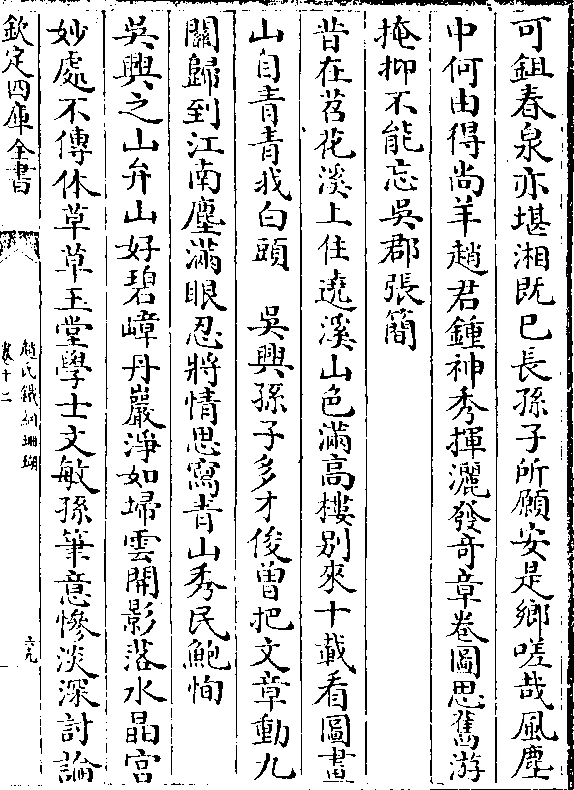 可鉏春泉亦堪湘既已長孫子所願安是鄉嗟哉風塵
中何由得尚羊趙君鍾神秀揮灑發奇章卷圖思舊游
掩抑不能忘吳郡張簡
昔在苕花溪上住遶溪山色滿高樓别來十載看圖畫
山自青青我白頭　吳興孫子多才俊曽把文章動九
關歸到江南塵滿眼忍將情思寫青山秀民鮑恂
吳興之山弁山好碧嶂丹巖淨如埽雲開影落水晶宫
妙處不傳休草草玉堂學士文敏孫筆意慘淡深討論
欽定四庫全書
趙氏鐵網珊瑚
卷十二
六九